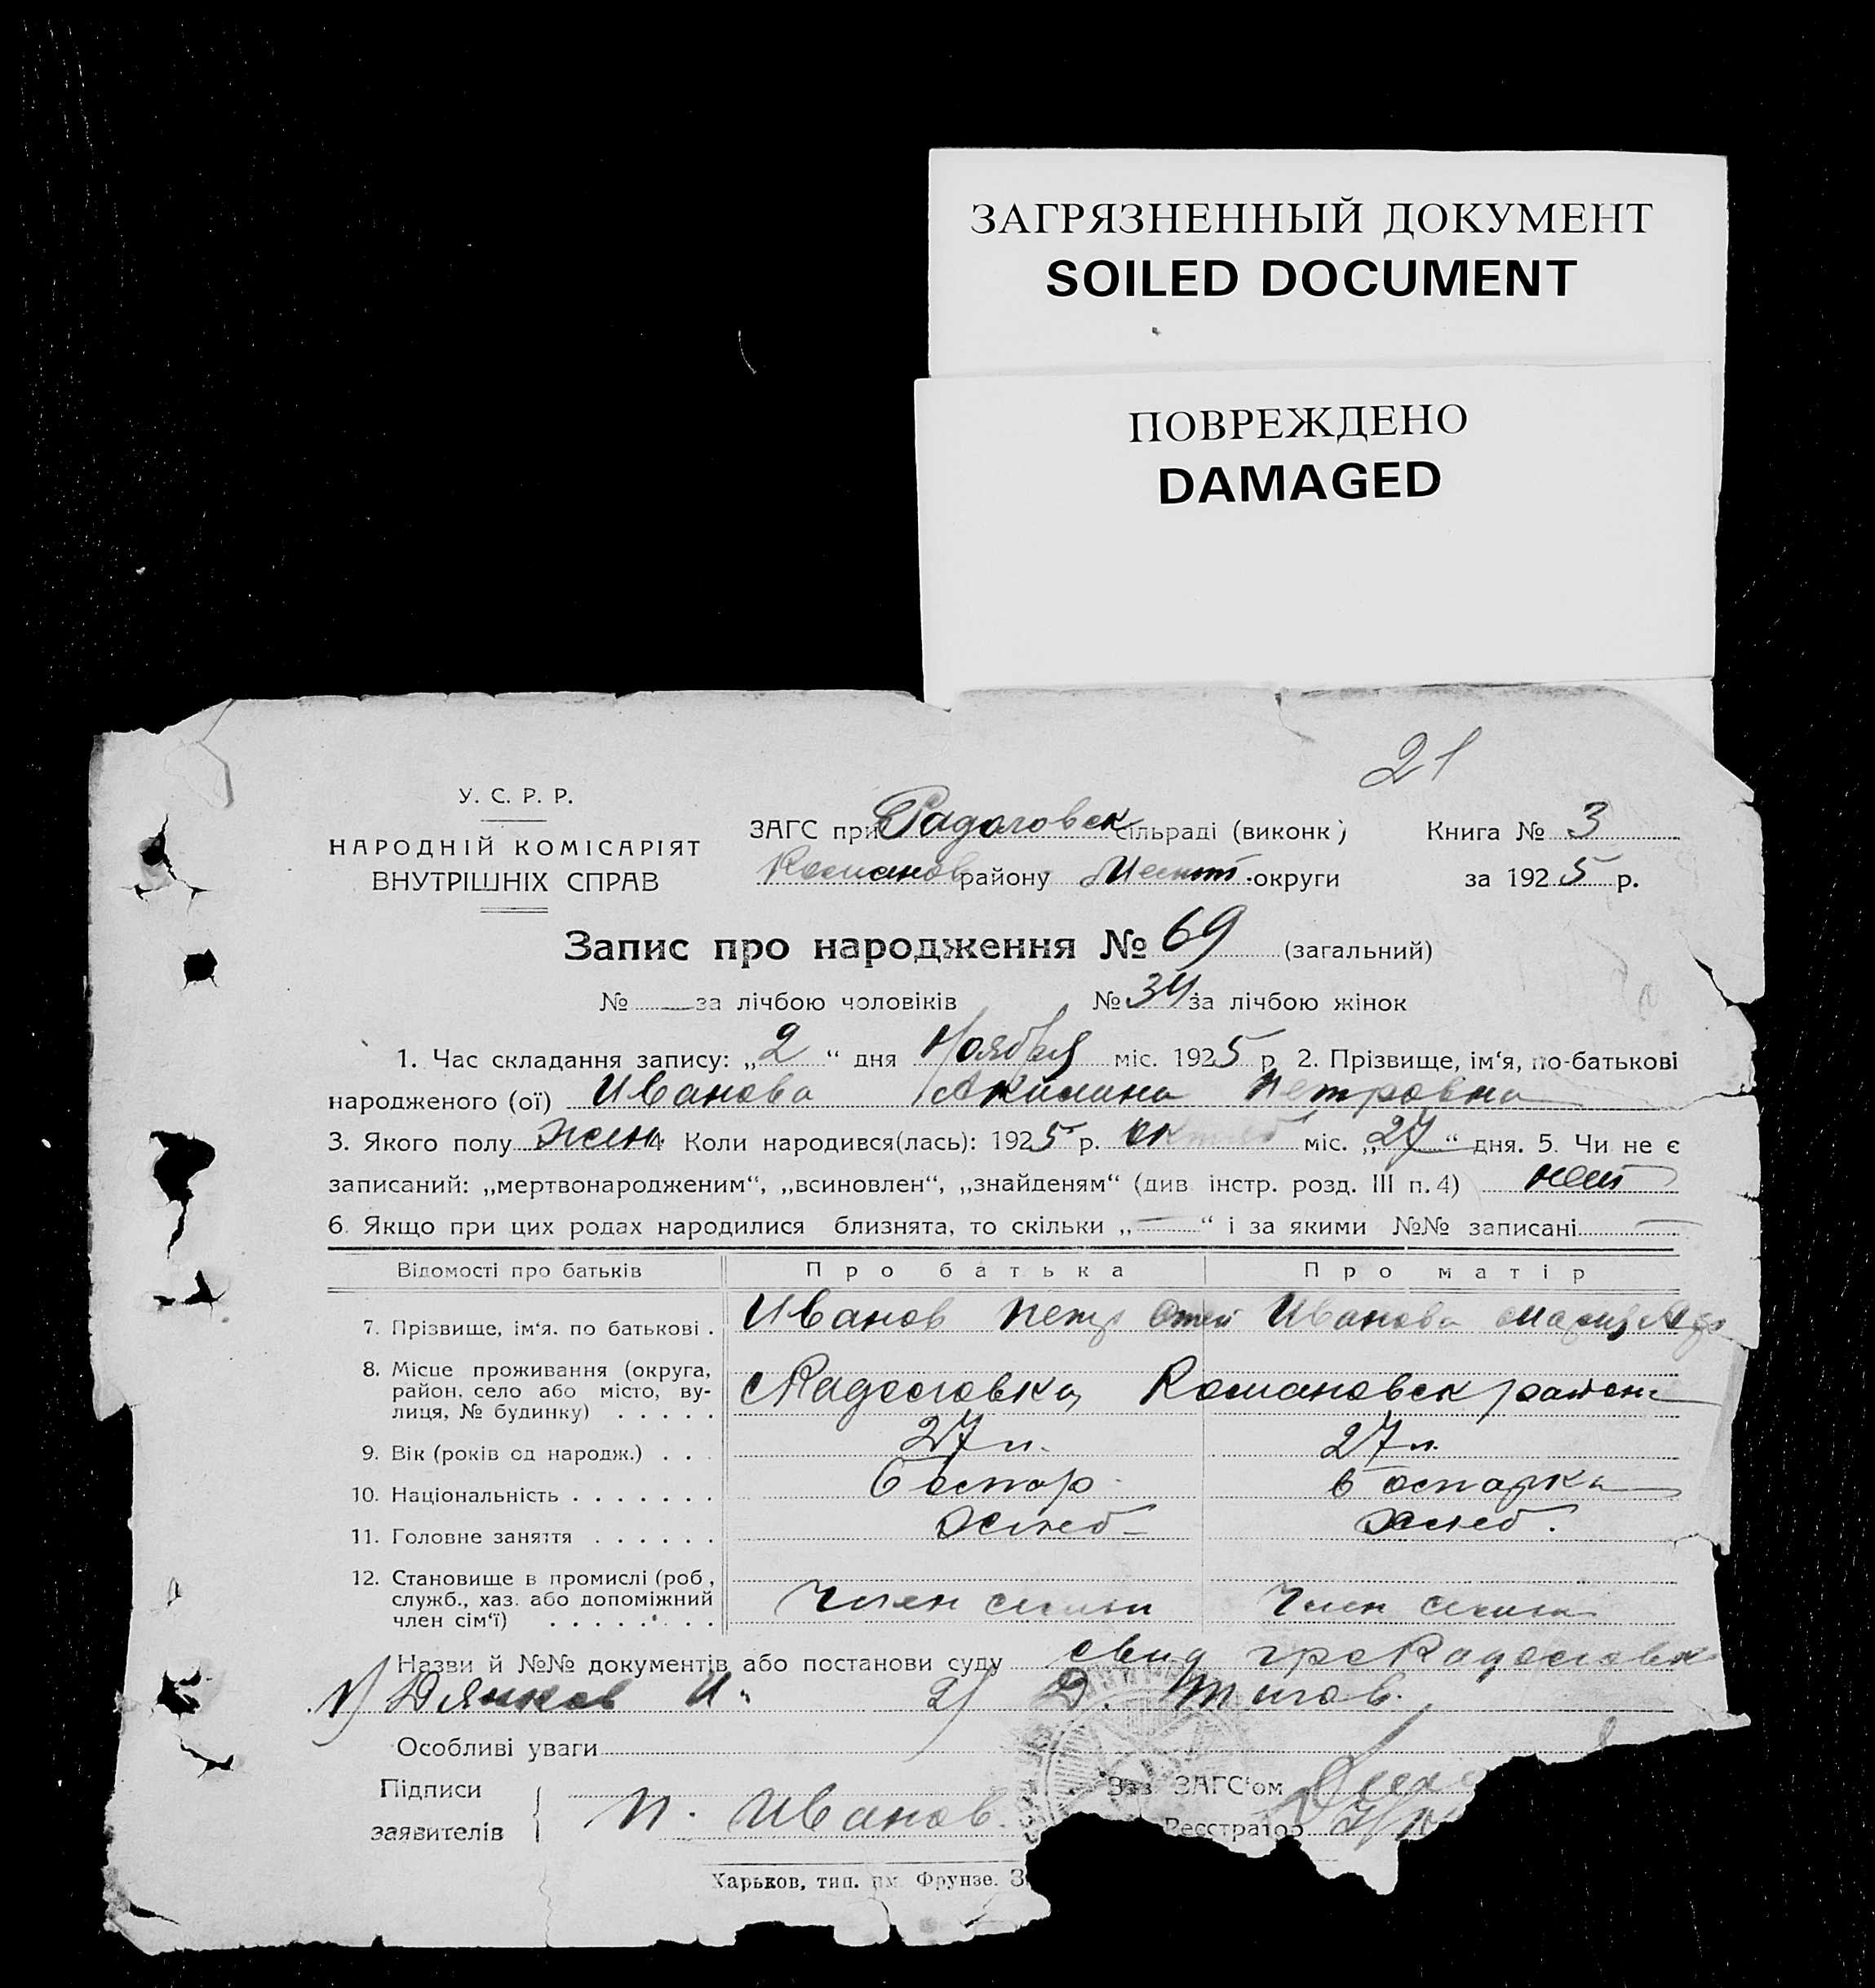 ЗАГРЯЗНЕННЫЙ ДОКУМЕНТ
SOILED DOCUMENT
ПОВРЕЖДЕНО
DAMAGED
21
У. С. Р. Р.
НАРОДНІЙ КОМІСАРІЯТ
ВНУТРІШНІХ СПРАВ
ЗАГС при сільраді (виконк)
Романов району округи
Книга № 3
за 1925 р.
Запис про народження № 69 (загальний)
№ — за лічбою чоловіків № 34 за лічбою жінок
1. Час складання запису: „2“ дня Ноября міс. 1925 р 2. Прізвище, ім‘я, по-батькові
народженого (ої) Иванова Акилина Петровна
3. Якого полу жен. 4 Коли народився(лась): 1925 р. октяб міс. „27“ дня. 5. Чи не є
записаний: „мертвонародженим“, „всиновлен“, „знайденям“ (див. інстр. розд. III п. 4) нет
6. Якщо при цих родах народилися близнята, то скільки „—“ і за якими №№ записані —
Відомості про батьків Про батька Про матір
7. Прізвище, ім‘я. по батькові . Иванов Петр Иванова Мария
8. Місце проживання (округа,
район, село або місто, ву-
лиця, № будинку) . . . . . Романовск района
9. Вік (років од народж.) . . . 27 л. 27 л.
10. Національність . . . . . . . болгар болгарка
11. Головне заняття . . . . . . хлеб хлеб.
12. Становище в промислі (роб.,
служб., хаз. або допоміжний
член сім‘ї) . . . . . . . Член семьи Член семьи
Назви й №№ документів або постанови суду свид
1) Дянков И. 2) Д.
Особливі уваги
Підписи
заявителів П. Иванов.
Зав ЗАГС‘ом
Реєстратор
Харьков, тип. им. Фрунзе. З